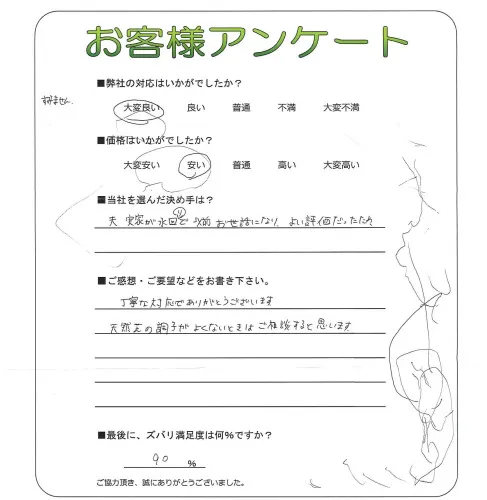 お客様アンケート
■弊社の対応はいかがでしたか?
すみません
大変良い 良い 普通 不満 大変不満
■価格はいかがでしたか?
大変安い 安い 普通 高い 大変高い
■当社を選んだ決め手は?
夫 実家が 以前お世話になり、よい評価だったため
■ご感想・ご要望などをお書き下さい。
丁寧な対応でありがとうございます
の調子がよくないときはご相談すると思います
■最後に、ズバリ満足度は何%ですか?
90 %
ご協力頂き、誠にありがとうございました。